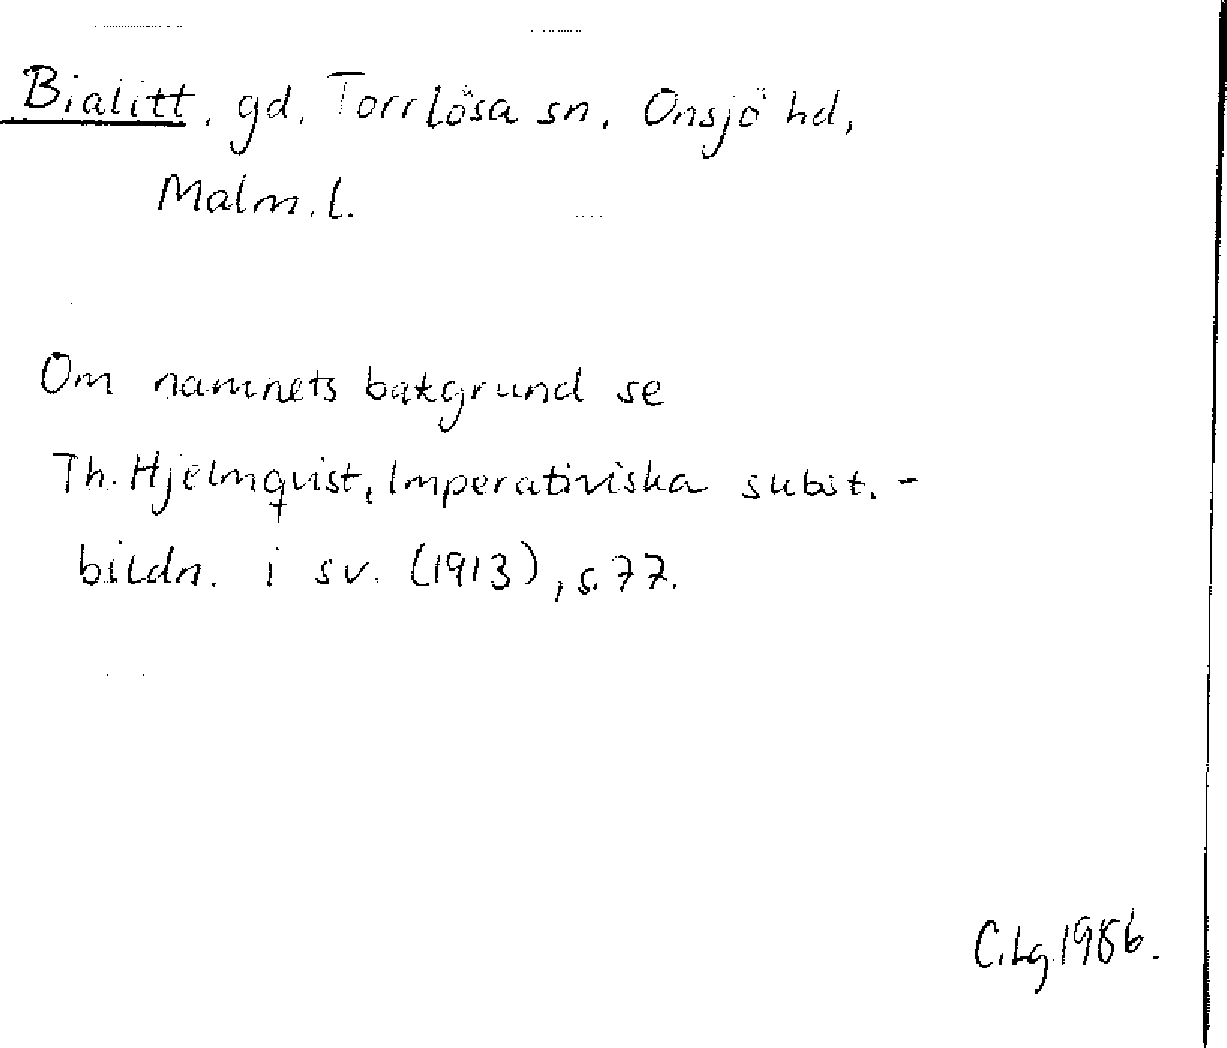 Bialitt, gd. Torrlösa sn. Onsjö hd,
Malm. l.
Om namnets bakgrund se
Th. Hjelmqvist, Imperativiska subst.-
bildn. i sv. (1913), s. 77.
C.Lg. 1986.